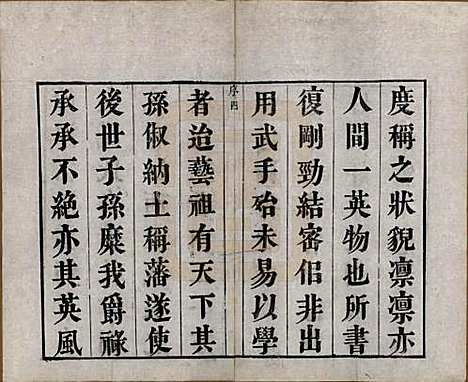 度稱之狀貌凛凛亦
人間一英物也所書
復剛勁結審佀非出
用武手殆未易以學
序四
者迨藝祖有天下其
孫俶納土稱藩遂使
後世子孫糜我爵祿
承承不絕亦其英風